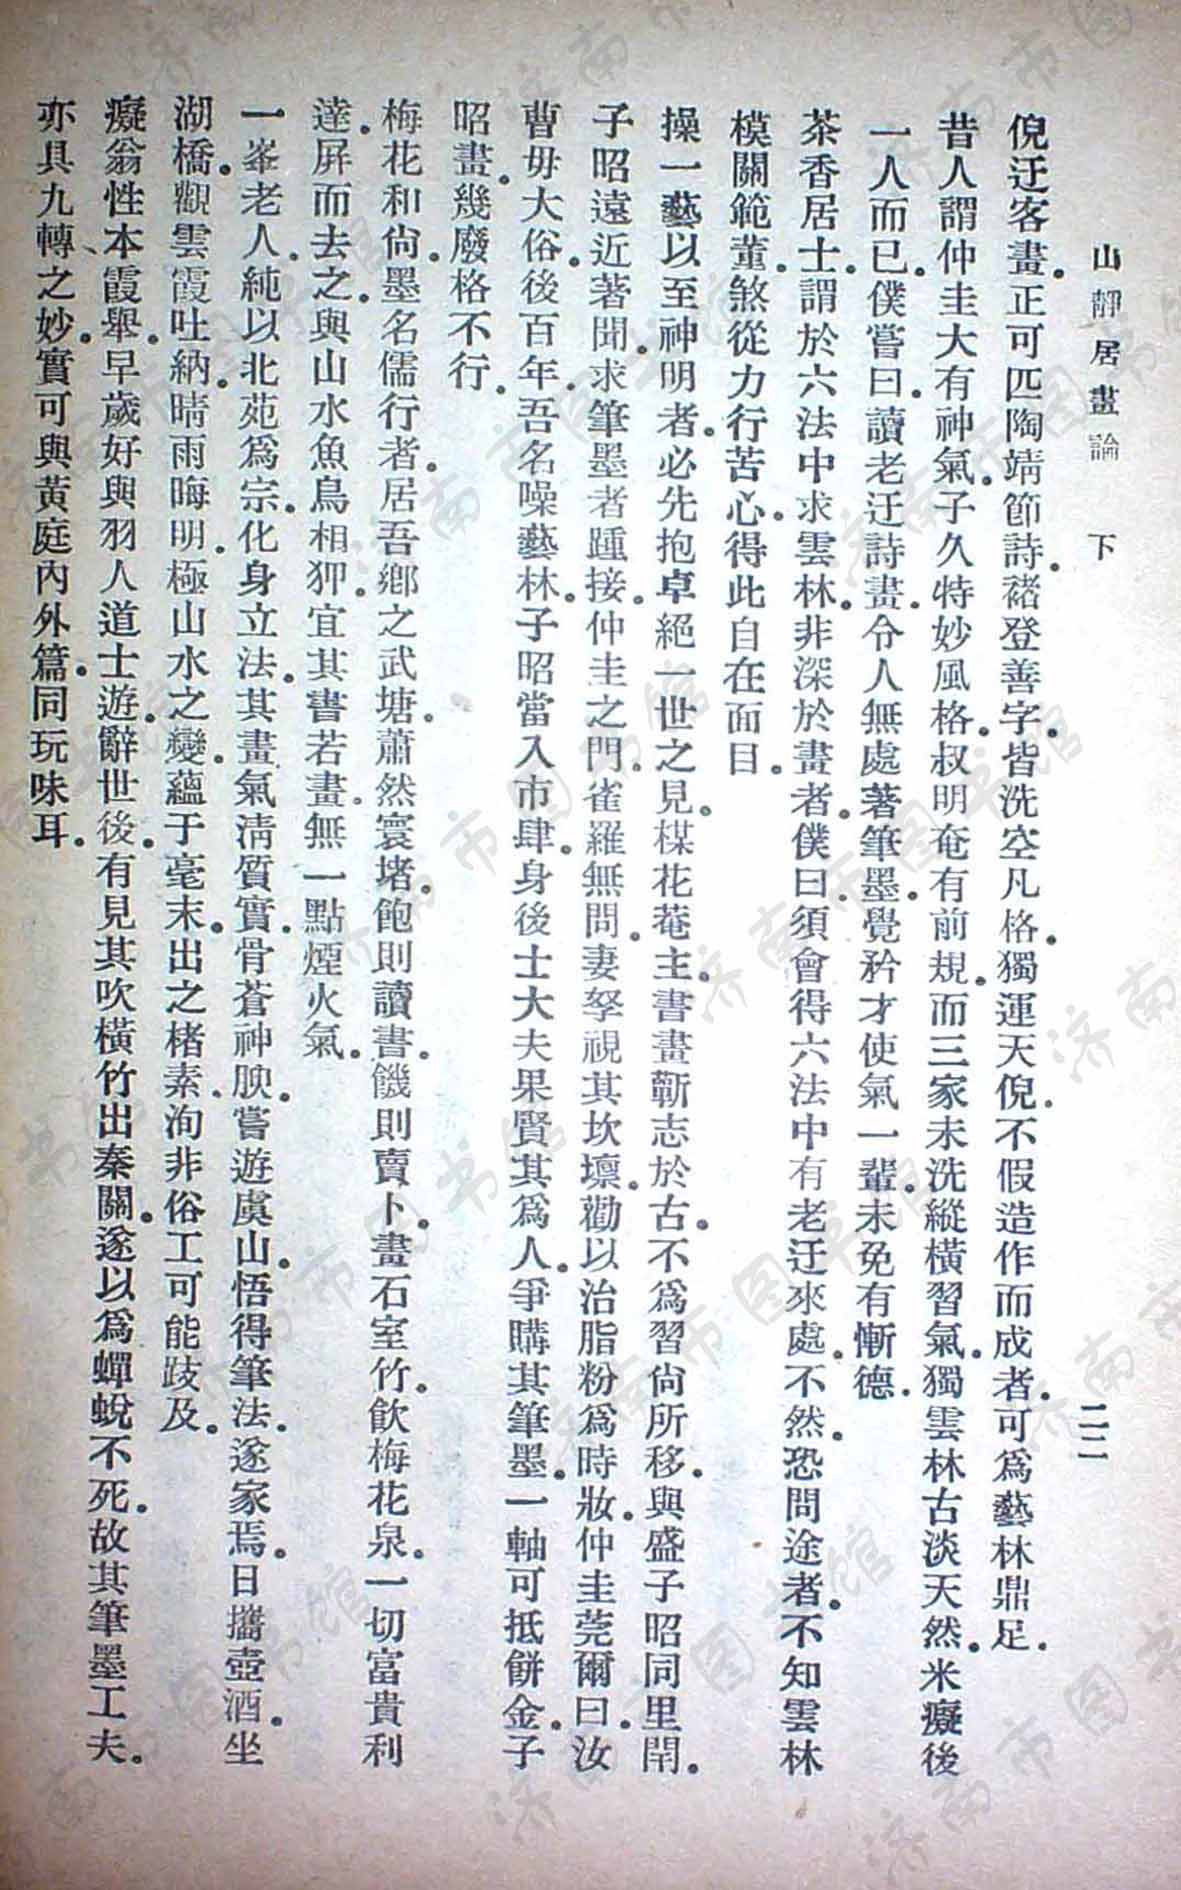 山靜居畫論　下　　二二
倪迂客畫。正可匹陶靖節詩。褚登善字。皆洗空凡格。獨運天倪。不假造作而成者。可爲藝林鼎足。
昔人謂仲圭大有神氣。子久特妙風格。叔明奄有前規。而三家未洗縱橫習氣。獨雲林古淡天然。米癡後
一人而已。僕嘗曰。讀老迂詩畫。令人無處著筆墨。覺矜才使氣一輩。未免有慚德。
茶香居士。謂於六法中求雲林。非深於畫者。僕曰。須會得六法中有老迂來處。不然。恐問途者。不知雲林
模關範董。煞從力行苦心。得此自在面目。
操一藝以至神明者。必先抱卓絕一世之見。楳花菴主。書畫蘄志於古。不爲習尙所移。與盛子昭同里閈。
子昭遠近著聞。求筆墨者踵接。仲圭之門。雀羅無問。妻孥視其坎壈。勸以治脂粉爲時妝。仲圭莞爾曰。汝
曹毋大俗。後百年。吾名噪藝林。子昭當入市肆。身後士大夫果賢其爲人。爭購其筆墨。一軸可抵餅金。子
昭畫。幾廢格不行。
梅花和尙。墨名儒行者。居吾鄉之武塘。蕭然寰堵。飽則讀書。饑則賣卜。畫石室竹。飲梅花泉。一切富貴利
達。屏而去之。與山水魚鳥相狎。宜其書若畫。無一點煙火氣。
一峯老人。純以北苑爲宗。化身立法。其畫氣淸質實。骨蒼神腴。嘗遊虞山。悟得筆法。遂家焉。日攜壺酒。坐
湖橋。觀雲霞吐納。晴雨晦明。極山水之變。蘊于毫末。出之楮素。洵非俗工可能跂及。
癡翁性本霞舉。早歲好與羽人道士遊。辭世後。有見其吹橫竹出秦關。遂以爲蟬蛻不死。故其筆墨工夫。
亦具九轉之妙。實可與黃庭內外篇。同玩味耳。
济南市图书馆